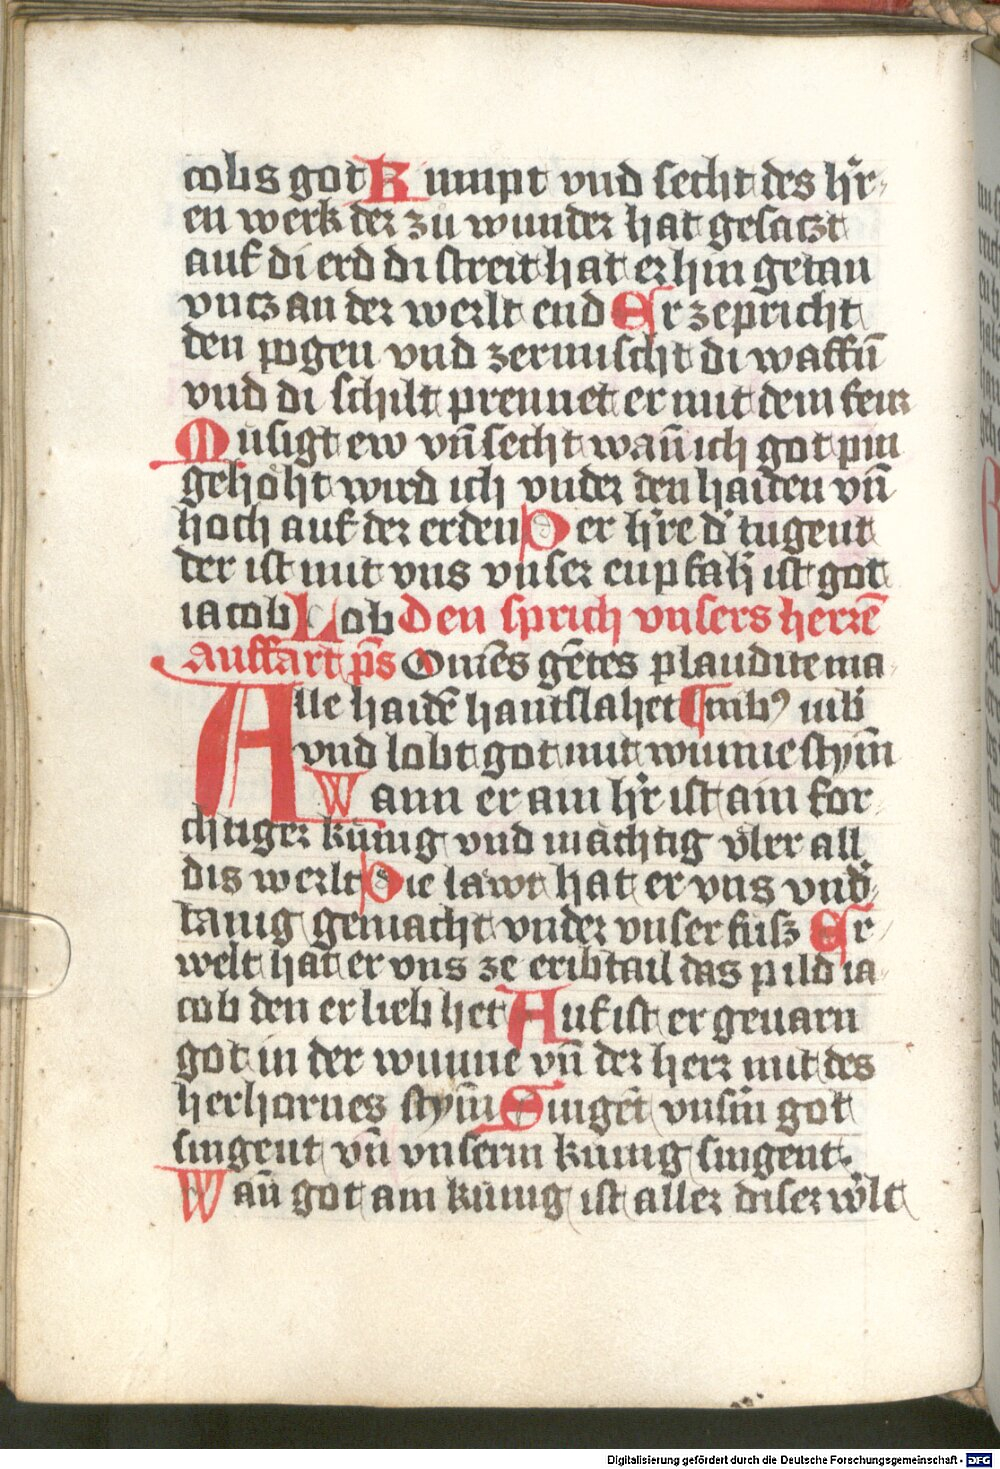 cobs got Kumpt vnd secht des hr̃-
en werk der zu wunder hat gesaczt
auf di erd di streit hat er hin getan
vncz an der werlt end Er zepricht
den pogen vnd zermischt di waffn̄
vnd di schilt prennet er mit dem feur
Musigt ew vn̄ secht wan̄ ich got pin
gehöht wird ich vnder den haiden vn̄
hoch auf der erden Der hr̃e d' tugent
der ist mit vns vnser enpfah' ist got
iacob Lob Den sprich vnsers herrē
auffart p̄s Om̄es gētes plaudite ma-
Alle haidē hantslahet nib9 iub
vnd lobt got mit wunne stym̄
Wann er ain hr̃ ist ain for-
chtiger kunig vnd mächtig vber all
dis werlt Die läwt hat er vns vnd'-
tanig gemacht vnder vnser fusz Er-
welt hat er vns ze eribtail das pild ia-
cob den er lieb het Auf ist er geuarn
got in der wunne vn̄ der herr mit des
herhornes stym̄ Singēt vnsm̄ got
singent vn̄ vnserm kunig singent.
Wan̄ got ain kunig ist aller diser w'lt
Digitalisierung gefördert durch die Deutsche Forschungsgemeinschaft - DFG